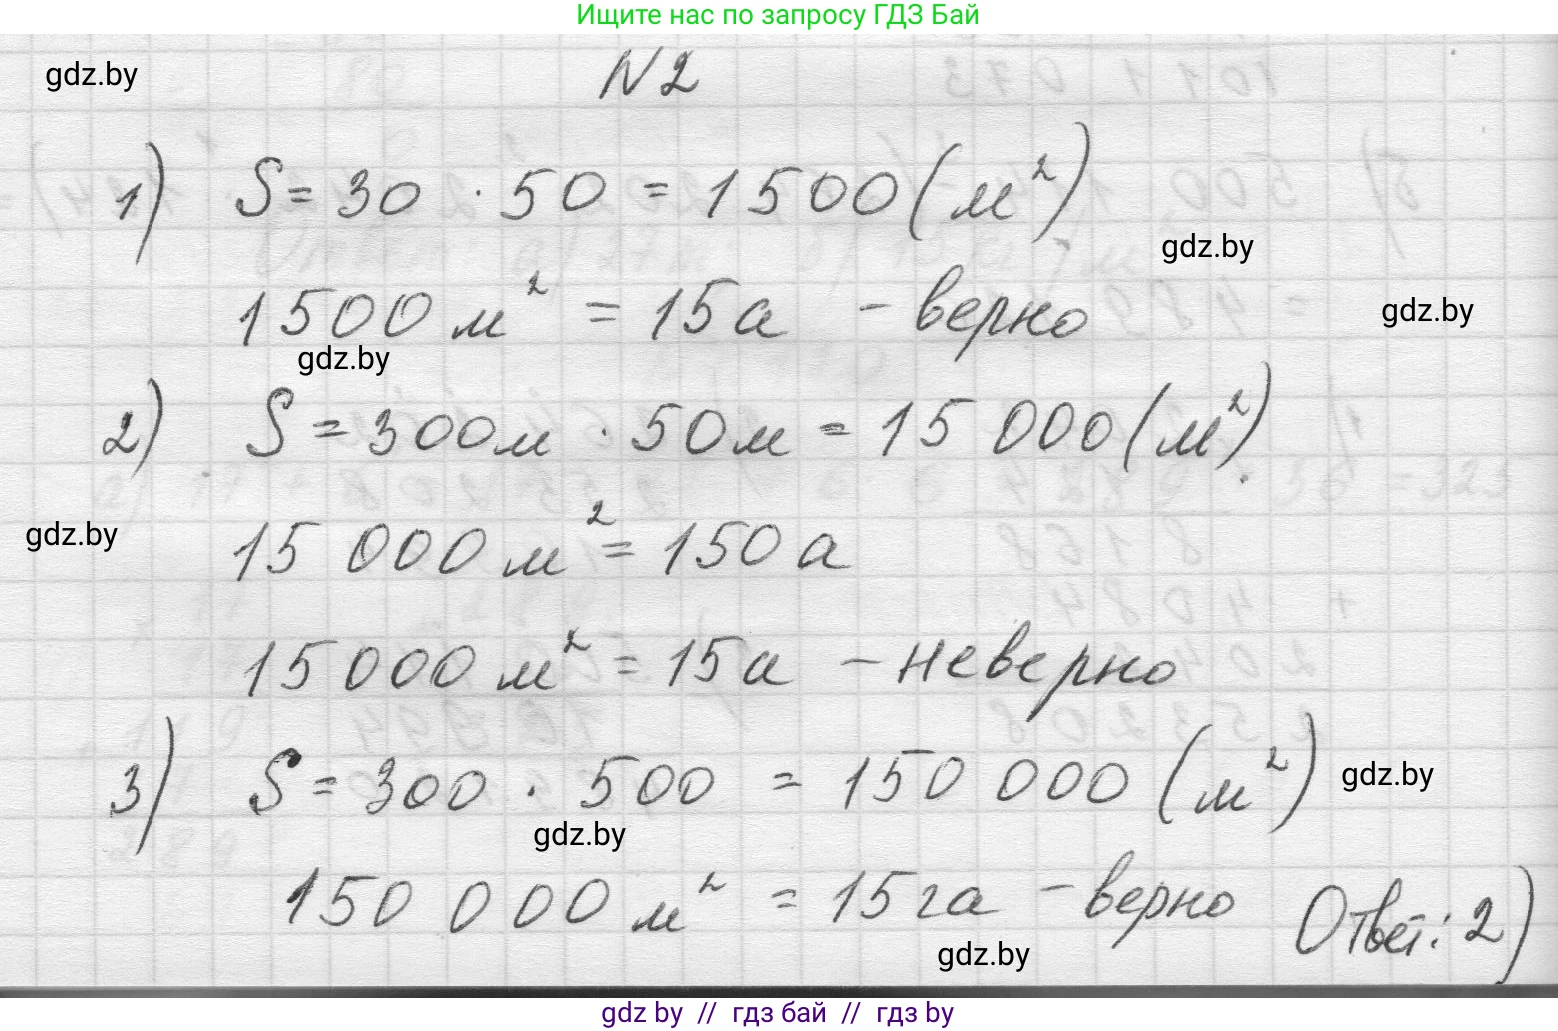 Ищите нас по запросу ГДЗ Бай
gdz.by
N2
1) S = 30 · 50 = 1500 (м²)
gdz.by
1500 м² = 15 а – верно
gdz.by
gdz.by
2) S = 300м · 50м = 15 000 (м²)
gdz.by
15 000 м² = 150 а
15 000 м² = 15а – неверно
3) S = 300 · 500 = 150 000 (м²)
gdz.by
gdz.by
150 000 м² = 15 га – верно
Ответ: 2)
gdz.by
gdz by // гдз бай // гдз by